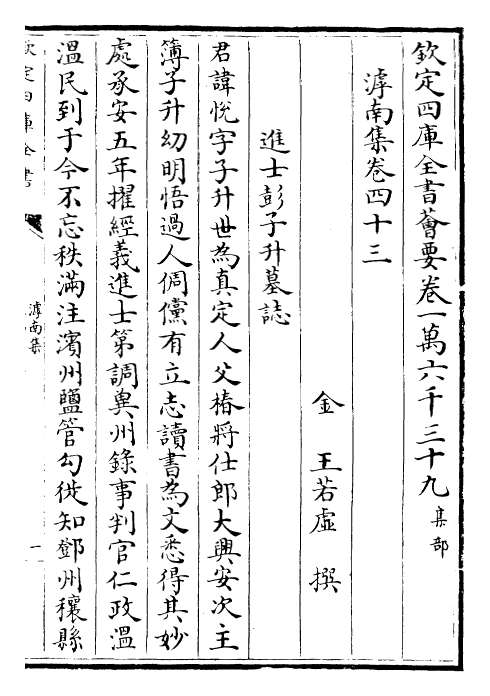 欽定四庫全書薈要卷一萬六千三十九 集部
滹南集卷四十三
金 王若虛 撰
進士彭子升墓誌
君諱悅字子升世為真定人父椿將仕郎大興安次主
簿子升幼明悟過人倜儻有立志讀書為文悉得其妙
處承安五年擢經義進士第調冀州錄事判官仁政溫
溫民到于今不忘秩滿注濱州鹽管勾徙知鄧州穰縣
欽定四庫全書
滹南集
一